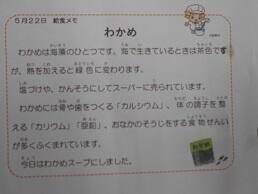 5月22日 給食メモ
わかめ
わかめは海藻のひとつです。海で生きているときは茶色です
が、熱を加えると緑色に変わります。
塩づけや、かんそうにしてスーパーに売られています。
わかめには骨や歯をつくる「カルシウム」、体の調子を整
える「カリウム」「亜鉛」、おなかのそうじをする食物せんい
が多くふくまれています。
今日はわかめスープにしました。